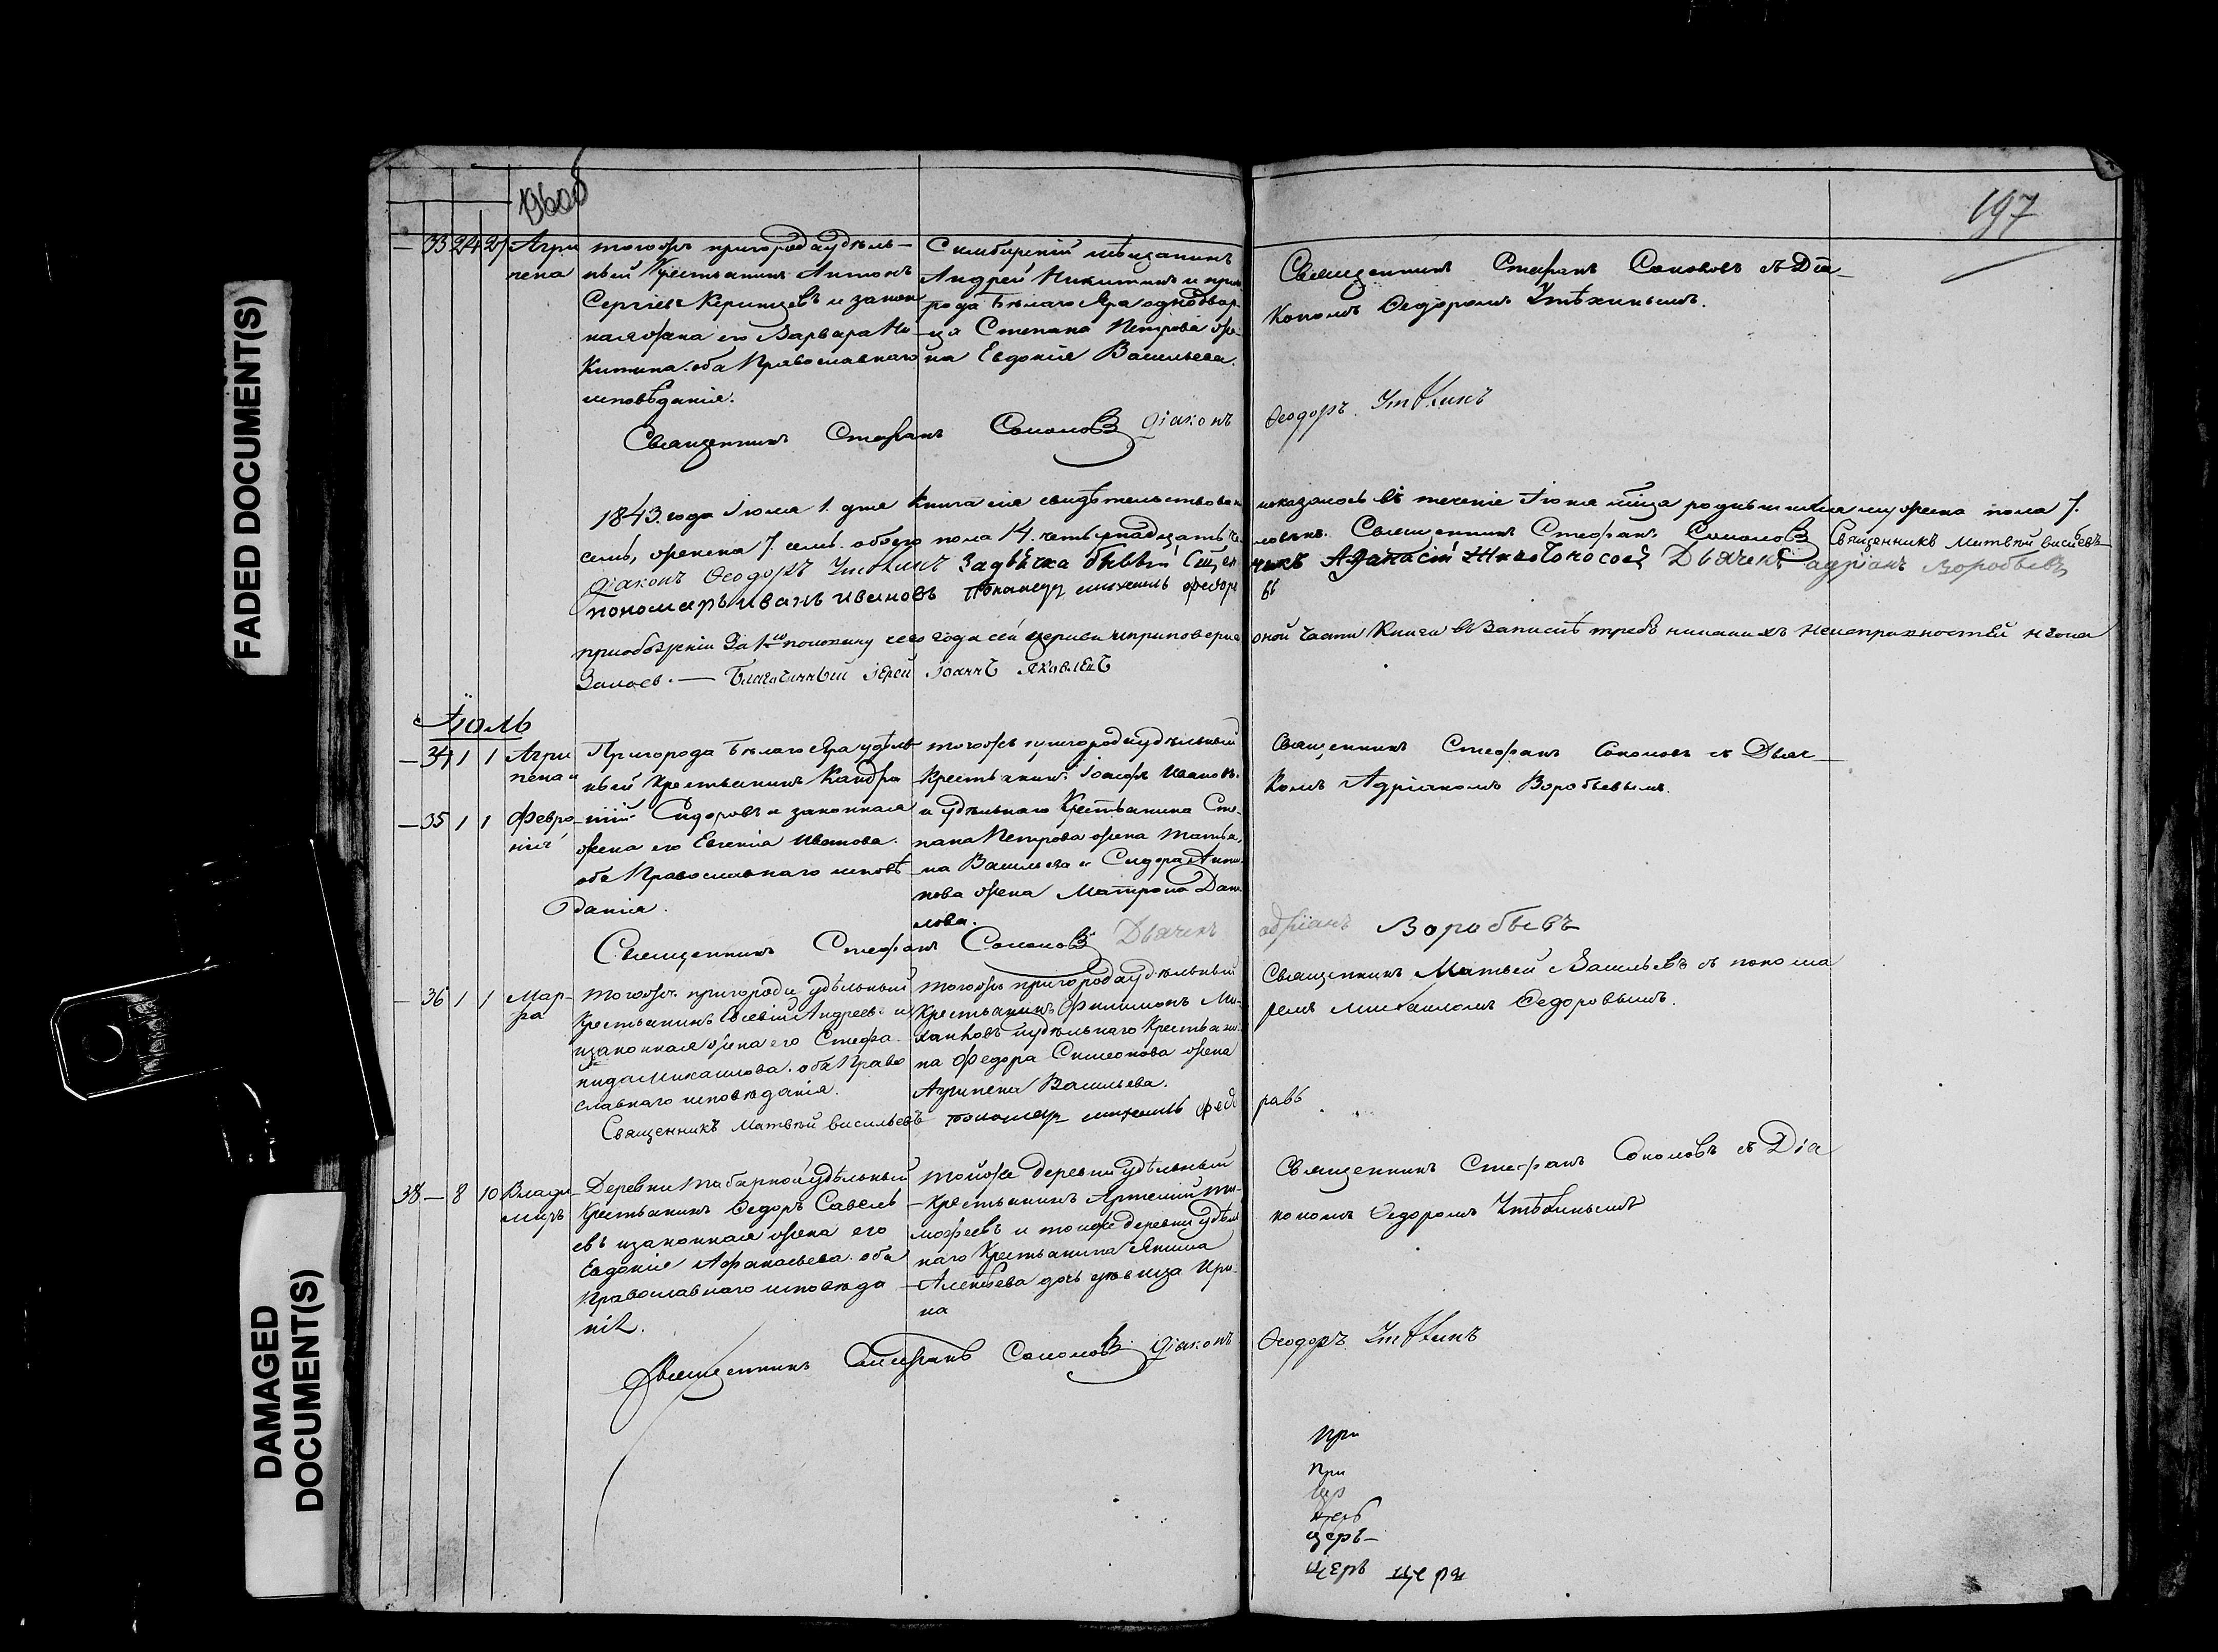 FADED DOCUMENT(S)
DAMAGED DOCUMENT(S)
196об
197
— 33 24 27 Агри
пена
тогожъ пригорода удѣль—
ный Крестьянинъ Антонъ
Сергіевъ и закон
ная жена его Варвара Ни
китина. оба Православнаго
исповѣданія.
Симбирскій мѣщанинъ
Андрей Никитинъ и приго
рода Бѣлаго Яра однодвор
ца Степана Петрова же
на Евдокія Васильева.
Священникъ Стефанъ Соколовъ съ Діа—
кономъ Ѳедоромъ Утѣхинымъ.
Священникъ Стефанъ Соколовъ Діаконъ Ѳеодоръ Утѣхинъ
1843. года Іюля 1. дня книга сія свидѣтельствована и оказалось въ теченіе Іюня мца родившихся мужеска пола 7.
семь, женска 7. семь. обоего пола 14. четырнадцать че ловѣкъ. Священникъ Стефанъ Соколовъ Священникъ Матвѣй Васильевъ
Діаконъ Ѳеодоръ Утѣхинъ Афанасій Живоносовъ Дьячекъ адріанъ Воробьевъ
пономарь иванъ ивановъ Пономарь михаилъ федоровъ
за 1ю половину сего года сей церкви и при повѣркѣ оной части Книги въ записѣ требъ никакихъ неисправностей не ока
залось. — Благочинный Іерей Іоаннъ Яковлевъ
Іюль
— 34 1 1 Агри
пена и
— 35 1 1 Февро
нія
Пригорода Бѣлаго Яра удѣль
ный Крестьянинъ Кандра
тій Сидоровъ и законная
жена его Евгенія Иванова.
оба Православнаго исповѣ
данія.
тогожъ пригорода удѣльный
крестьянинъ Іосифъ Ивановъ.
и удѣльнаго Крестьянина Сте
пана Петрова жена Татья
на Васильева и Сидора Анти
пова жена Матрона Дани
лова.
Священникъ Стефанъ Соколовъ съ Дьяч—
комъ Адріаномъ Воробьевымъ.
Священникъ Стефанъ Соколовъ Дьячекъ адріанъ Воробьевъ
— 36 1 1 Мар
фа
тогожъ пригорода удѣльный
Крестьянинъ Андреевъ
и законная жена его Стефа
нида Михайлова. оба Право
славнаго исповѣданія.
тогожъ пригорода удѣльный
Крестьянинъ Филимонъ
и удѣльнаго Крестьяни
на Федора Симеонова жена
Агрипена Васильева.
Священникъ Матвей Васильевъ съ понома
ремъ Михаиломъ Ѳедоровымъ.
Священникъ Матвѣй Васильевъ Пономарь михаилъ федоровъ
38 — 8 10 Влади
миръ
Деревни Табарной удѣльный
Крестьянинъ Ѳедоръ Савель
евъ и законная жена его
Евдокія Афанасьева. оба
Православнаго исповѣда
нія.
тойже деревни удѣльный
Крестьянинъ Артемій Ти
мофеевъ и тойже деревни удѣль
наго Крестьянина Якима
Алексѣева дочь дѣвица Ири
на
Священникъ Стефанъ Соколовъ съ Діа
кономъ Ѳедоромъ Утѣхинымъ
Священникъ Стефанъ Соколовъ Діаконъ Ѳеодоръ Утѣхинъ
При
При
Цер
церъ—
Церъ церк